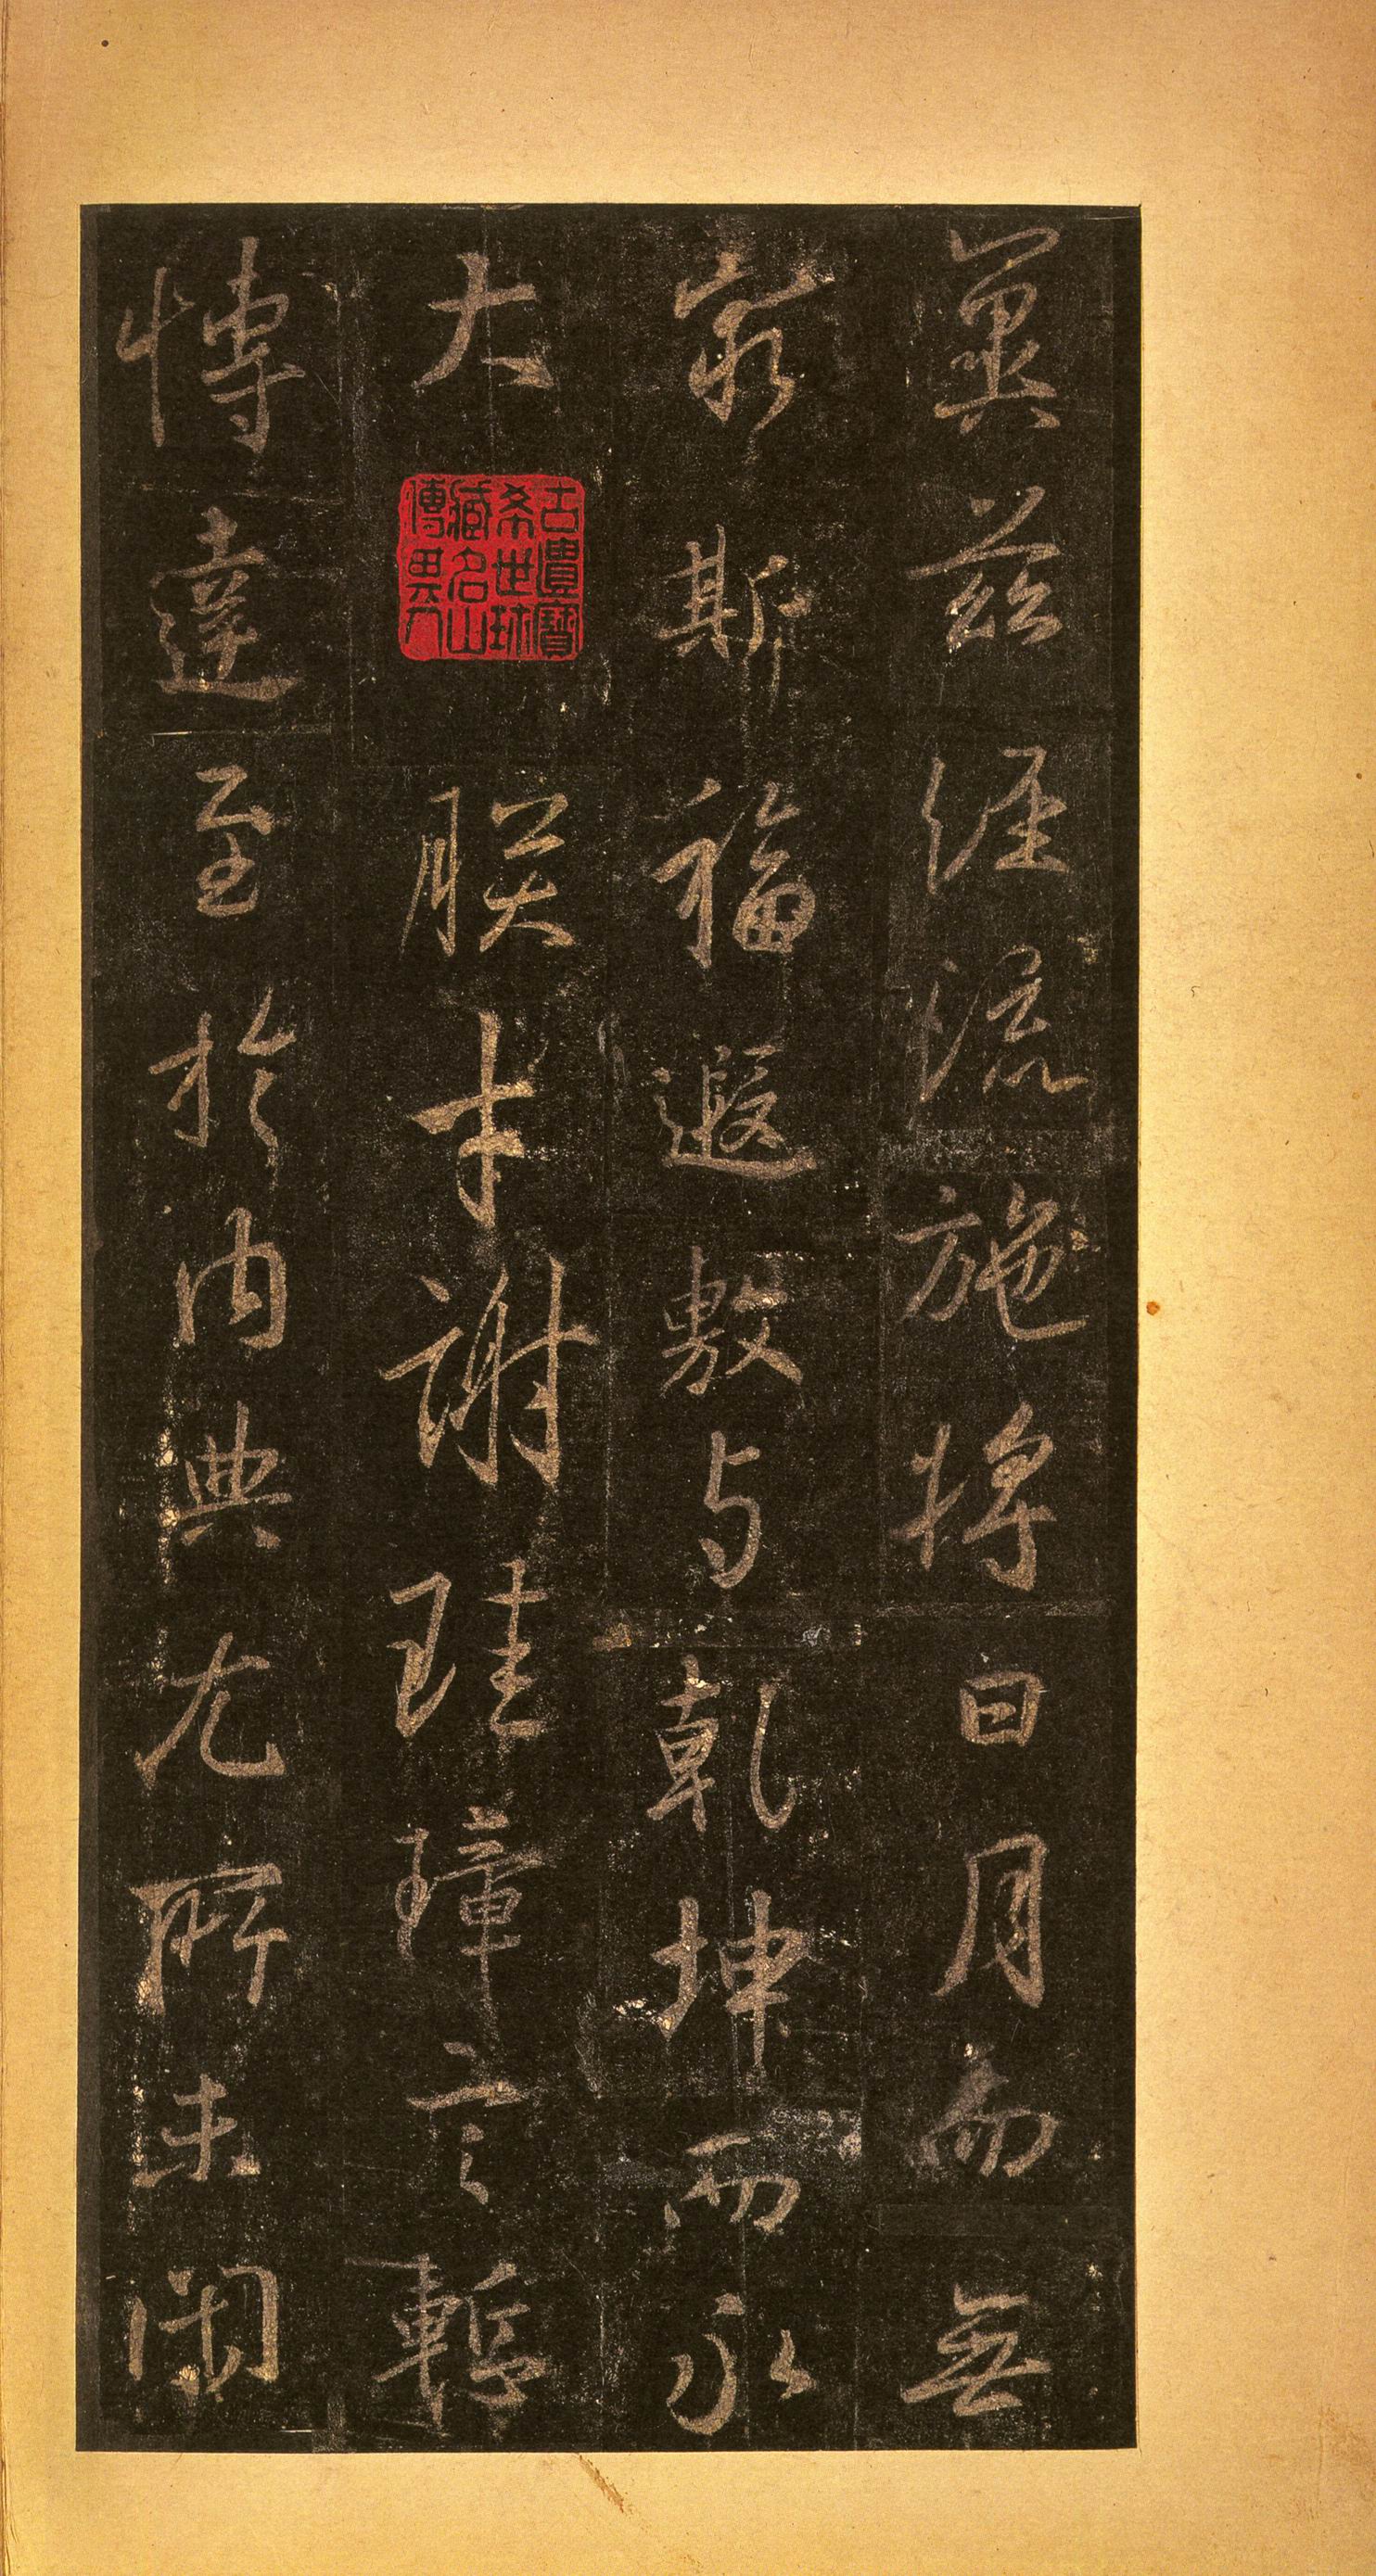 冀茲經流施將日月而無
窮斯福遐敷与乾坤而永
大
朕才謝珪璋言慙
博達至於內典尤所未閑
古貴寶
希世珍
藏名山
傳異人